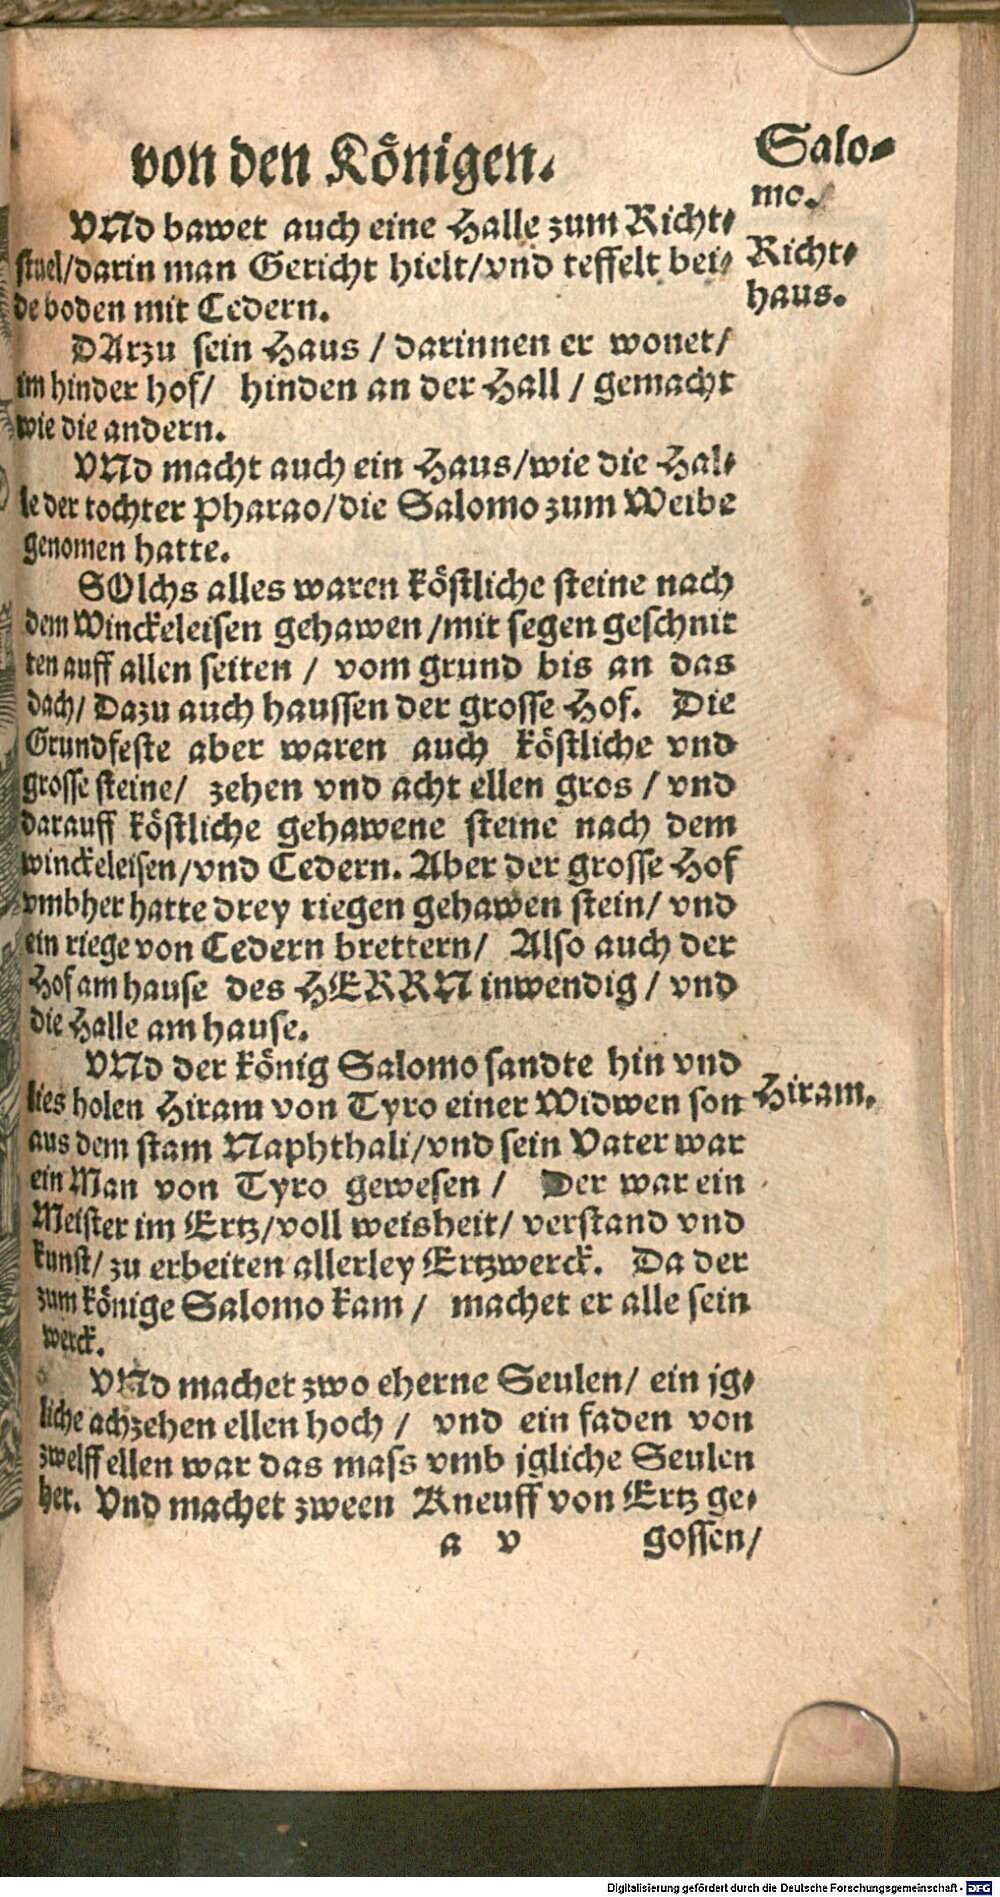 von den Königen.
Salo-
mo.
VNd bawet auch eine Halle zum Richt-
stuel/darin man Gericht hielt/vnd teffelt bei-
de boden mit Cedern.
Richt-
haus.
DArzu sein Haus / darinnen er wonet/
im hinder hof/ hinden an der Hall / gemacht
wie die andern.
VNd macht auch ein Haus/wie die Hal-
le der tochter Pharao/die Salomo zum Weibe
genomen hatte.
SOlchs alles waren köstliche steine nach
dem Winckeleisen gehawen /mit segen geschnit
ten auff allen seiten / vom grund bis an das
dach/ Dazu auch haussen der grosse Hof. Die
Grundfeste aber waren auch köstliche vnd
grosse steine/ zehen vnd acht ellen gros / vnd
darauff köstliche gehawene steine nach dem
winckeleisen/vnd Cedern. Aber der grosse Hof
vmbher hatte drey riegen gehawen stein/ vnd
ein riege von Cedern brettern/ Also auch der
Hof am hause des HERRN inwendig / vnd
die Halle am hause.
VNd der könig Salomo sandte hin vnd
lies holen Hiram von Tyro einer Widwen son
Hiram.
aus dem stam Naphthali/vnd sein Vater war
ein Man von Tyro gewesen / Der war ein
Meister im Ertz/voll weisheit/ verstand vnd
kunst/ zu erbeiten allerley Ertzwerck. Da der
zum könige Salomo kam / machet er alle sein
werck.
VNd machet zwo eherne Seulen/ ein jg-
liche achzehen ellen hoch / vnd ein faden von
zwelff ellen war das mass vmb jgliche Seulen
her. Vnd machet zween Kneuff von Ertz ge-
a v
gossen/
Digitalisierung gefördert durch die Deutsche Forschungsgemeinschaft - DFG